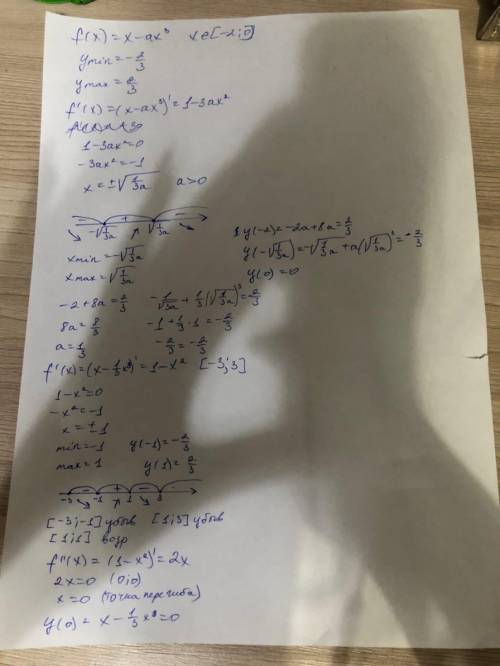 f(x) = x - ax³   x∈[-2;0]
ymin = -2/3
ymax = 2/3
f'(x) = (x - ax³)' = 1 - 3ax²
1 - 3ax² = 0
-3ax² = -1
x = ±√(1/3a)   a > 0
- + -
-√(1/3a)   √(1/3a)
y(-2) = -2a + 8a = 2/3
y(-√(1/3a)) = -√(1/3a) + a(√(1/3a))³ = -2/3
y(0) = 0
xmin = -√(1/3a)
xmax = √(1/3a)
-2 + 8a = 2/3   -1/√(3a) + 1/3(√(1/3a))³ = -2/3
8a = 8/3   -1 + 1/3 · 1 = -2/3
a = 1/3   -2/3 = -2/3
f'(x) = (x - 1/3x³)' = 1 - x²   [-3;3]
1 - x² = 0
-x² = -1
x = ±1
min = -1   y(-1) = -2/3
max = 1   y(1) = 2/3
- + -
-3 -1 1 3
[-3;-1] убыв   [1;3] убыв
[1;1] возр
f''(x) = (1 - x²)' = 2x
2x = 0   (0;0)
x = 0   (точка перегиба)
y(0) = x - 1/3x³ = 0